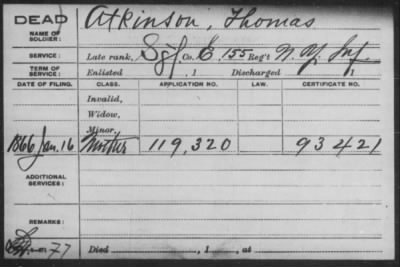 DEAD Atkinson, Thomas
NAME OF SOLDIER:
SERVICE: Late rank, Sgt, Co. E, 155 Reg't N.Y. Inf.
TERM OF SERVICE: Enlisted , 1 Discharged , 1
DATE OF FILING. CLASS. APPLICATION NO. LAW. CERTIFICATE NO.
Invalid,
Widow,
Minor,
1866 Jan. 16 Mother 119,320 93421
ADDITIONAL SERVICES:
REMARKS:
77 Died , 1 , at